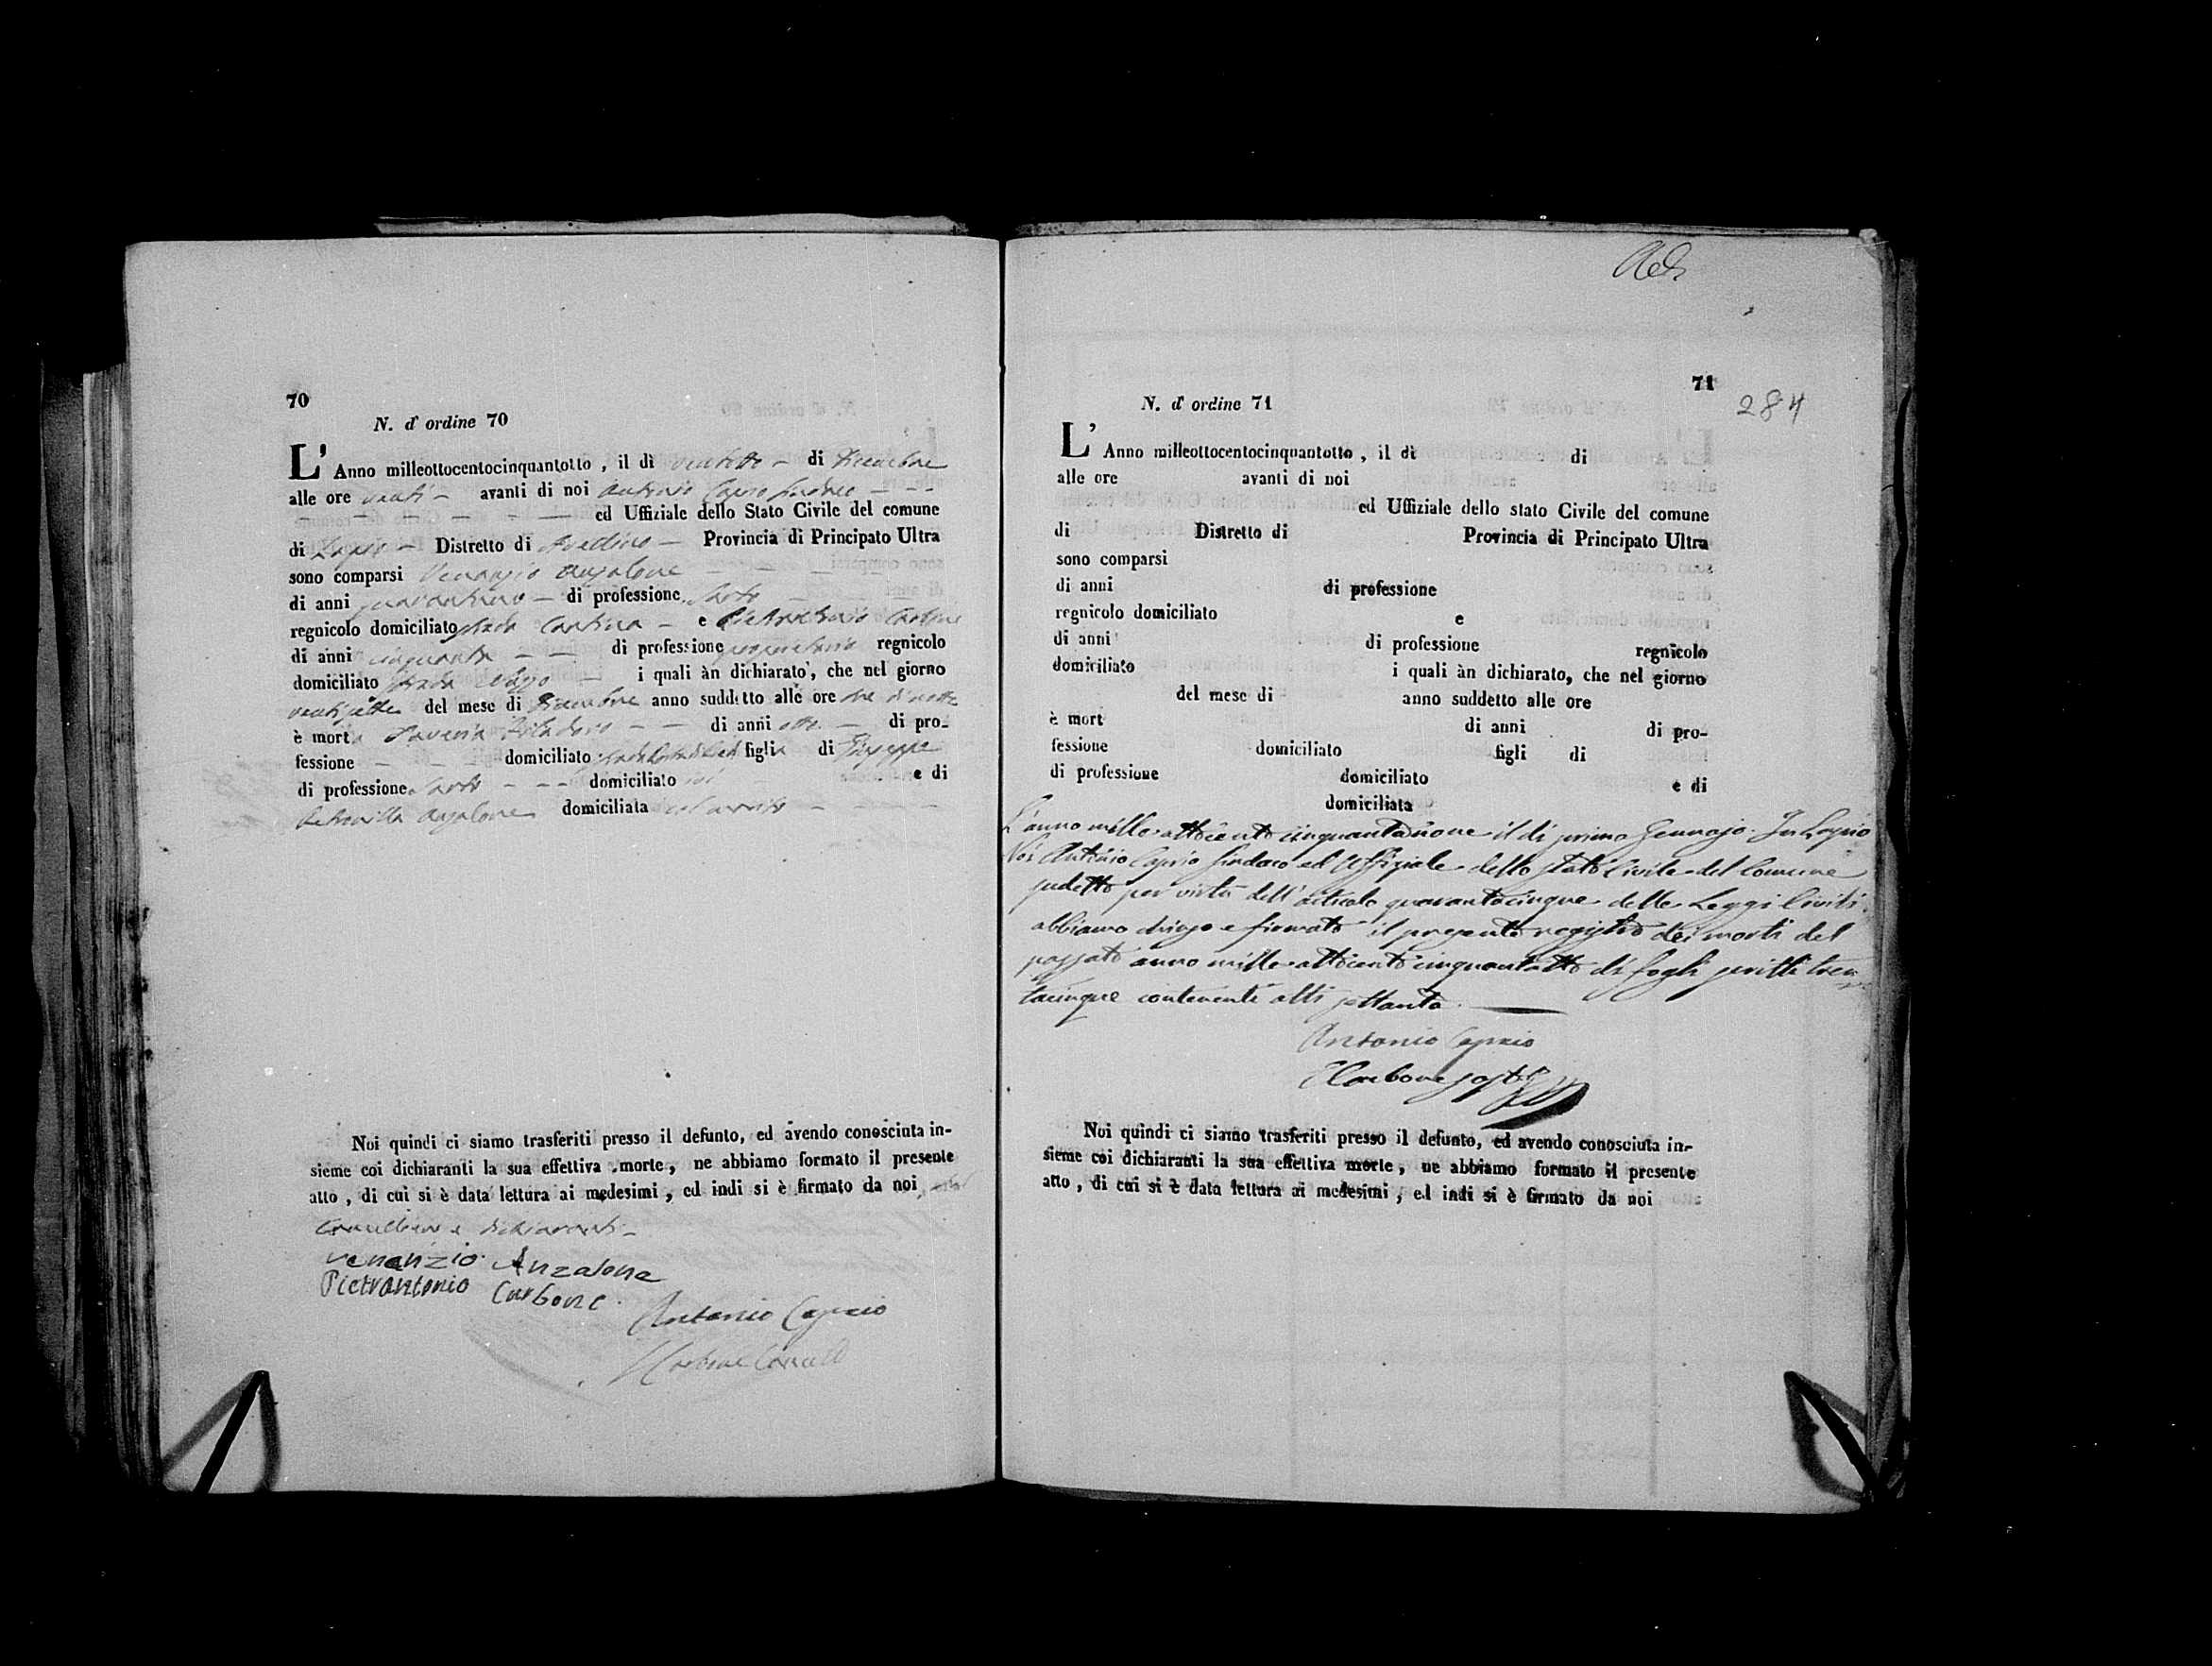 70
N. d' ordine 70
L' Anno milleottocentocinquantotto , il dì ventotto di Dicembre
alle ore venti avanti di noi Antonio Caprio Sindaco
ed Uffiziale dello Stato Civile del comune
di Lapio Distretto di Avellino Provincia di Principato Ultra
sono comparsi Venanzio Anzalone
di anni quarantuno di professione Sarto
regnicolo domiciliato strada Cantina e Pietrantonio Carbone
di anni cinquanta di professione proprietario regnicolo
domiciliato strada i quali àn dichiarato, che nel giorno
ventisette del mese di Dicembre anno suddetto alle ore di notte
è morta di anni otto di pro-
fessione domiciliato figlia di Giuseppe
di professione Sarto domiciliato ivi e di
Petronilla Anzalone domiciliata col marito
Noi quindi ci siamo trasferiti presso il defunto, ed avendo conosciuta in-
sieme coi dichiaranti la sua effettiva morte, ne abbiamo formato il presente
atto, di cui si è data lettura ai medesimi, ed indi si è firmato da noi
Cancelliere e dichiaranti
Venanzio Anzalone
Pietrantonio Carbone.
Antonio Caprio
Carbone Cancell
71
284
N. d' ordine 71
L' Anno milleottocentocinquantotto, il dì di
alle ore avanti di noi
ed Uffiziale dello stato Civile del comune
di Distretto di Provincia di Principato Ultra
sono comparsi
di anni di professione
regnicolo domiciliato e
di anni di professione regnicolo
domiciliato i quali àn dichiarato, che nel giorno
del mese di anno suddetto alle ore
è mort di anni di pro-
fessione domiciliato figli di
di professione domiciliato e di
domiciliata
L'anno mille ottocento cinquantanove il dì primo Gennajo. In Lapio
Noi Antonio Caprio Sindaco ed Uffiziale dello stato Civile del Comune
sudetto per virtù dell' articolo quarantacinque delle Leggi Civili
abbiamo chiuso e firmato il presente registro dei morti del
passato anno mille ottocento cinquantotto di fogli scritti tren
tacinque contenenti atti settanta.
Antonio Caprio
Carbone
Noi quindi ci siamo trasferiti presso il defunto, ed avendo conosciuta in-
sieme coi dichiaranti la sua effettiva morte, ne abbiamo formato il presente
atto, di cui si è data lettura ai medesimi, ed indi si è firmato da noi